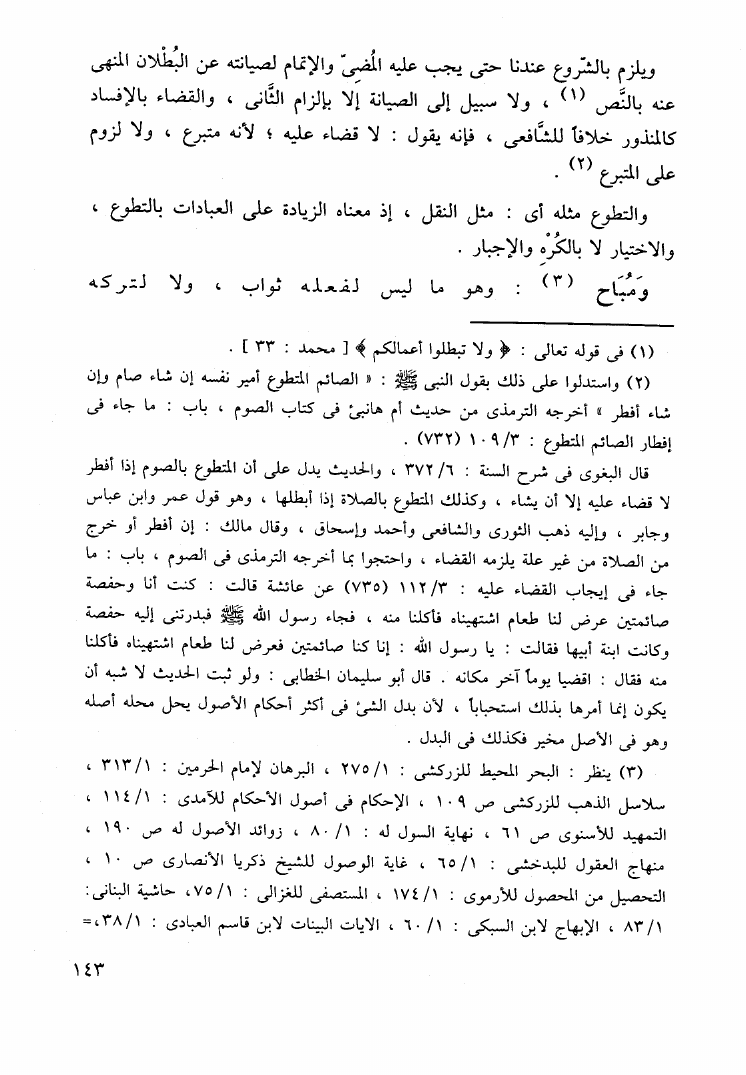 ويلزم بالشّروع عندنا حتى يجب عليه المُضِىّ والإتمام لصيانته عن البُطْلان المنهى
عنه بالنَّص (١) ، ولا سبيل إلى الصيانة إلا بإلزام الثَّانى ، والقضاء بالإفساد
كالمنذور خلافاً للشَّافعى ، فإنه يقول : لا قضاء عليه ؛ لأنه متبرع ، ولا لزوم
على المتبرع (٢) .
والتطوع مثله أى : مثل النقل ، إذ معناه الزيادة على العبادات بالتطوع ،
والاختيار لا بالكُرْهِ والإجبار .
وَمُبَاح (٣) : وهو ما ليس لفعله ثواب ، ولا لتركه
(١) فى قوله تعالى : ﴿ ولا تبطلوا أعمالكم ﴾ [ محمد : ٣٣ ] .
(٢) واستدلوا على ذلك بقول النبى ﷺ : « الصائم المتطوع أمير نفسه إن شاء صام وإن
شاء أفطر » أخرجه الترمذى من حديث أم هانئ فى كتاب الصوم ، باب : ما جاء فى
إفطار الصائم المتطوع : ١٠٩/٣ (٧٣٢) .
قال البغوى فى شرح السنة : ٣٧٢/٦ ، والحديث يدل على أن المتطوع بالصوم إذا أفطر
لا قضاء عليه إلا أن يشاء ، وكذلك المتطوع بالصلاة إذا أبطلها ، وهو قول عمر وابن عباس
وجابر ، وإليه ذهب الثورى والشافعى وأحمد وإسحاق ، وقال مالك : إن أفطر أو خرج
من الصلاة من غير علة يلزمه القضاء ، واحتجوا بما أخرجه الترمذى فى الصوم ، باب : ما
جاء فى إيجاب القضاء عليه : ١١٢/٣ (٧٣٥) عن عائشة قالت : كنت أنا وحفصة
صائمتين عرض لنا طعام اشتهيناه فأكلنا منه ، فجاء رسول الله ﷺ فبدرتنى إليه حفصة
وكانت ابنة أبيها فقالت : يا رسول الله : إنا كنا صائمتين فعرض لنا طعام اشتهيناه فأكلنا
منه فقال : اقضيا يوماً آخر مكانه . قال أبو سليمان الخطابى : ولو ثبت الحديث لا شبه أن
يكون إنما أمرها بذلك استحباباً ، لأن بدل الشئ فى أكثر أحكام الأصول يحل محله أصله
وهو فى الأصل مخير فكذلك فى البدل .
(٣) ينظر : البحر المحيط للزركشى : ٢٧٥/١ ، البرهان لإمام الحرمين : ٣١٣/١ ،
سلاسل الذهب للزركشى ص ١٠٩ ، الإحكام فى أصول الأحكام للآمدى : ١١٤/١ ،
التمهيد للأسنوى ص ٦١ ، نهاية السول له : ٨٠/١ ، زوائد الأصول له ص ١٩٠ ،
منهاج العقول للبدخشى : ٦٥/١ ، غاية الوصول للشيخ ذكريا الأنصارى ص ١٠ ،
التحصيل من المحصول للأرموى : ١٧٤/١ ، المستصفى للغزالى : ٧٥/١، حاشية البنانى:
٨٣/١ ، الإبهاج لابن السبكى : ٦٠/١ ، الايات البينات لابن قاسم العبادى : ٣٨/١،=
١٤٣